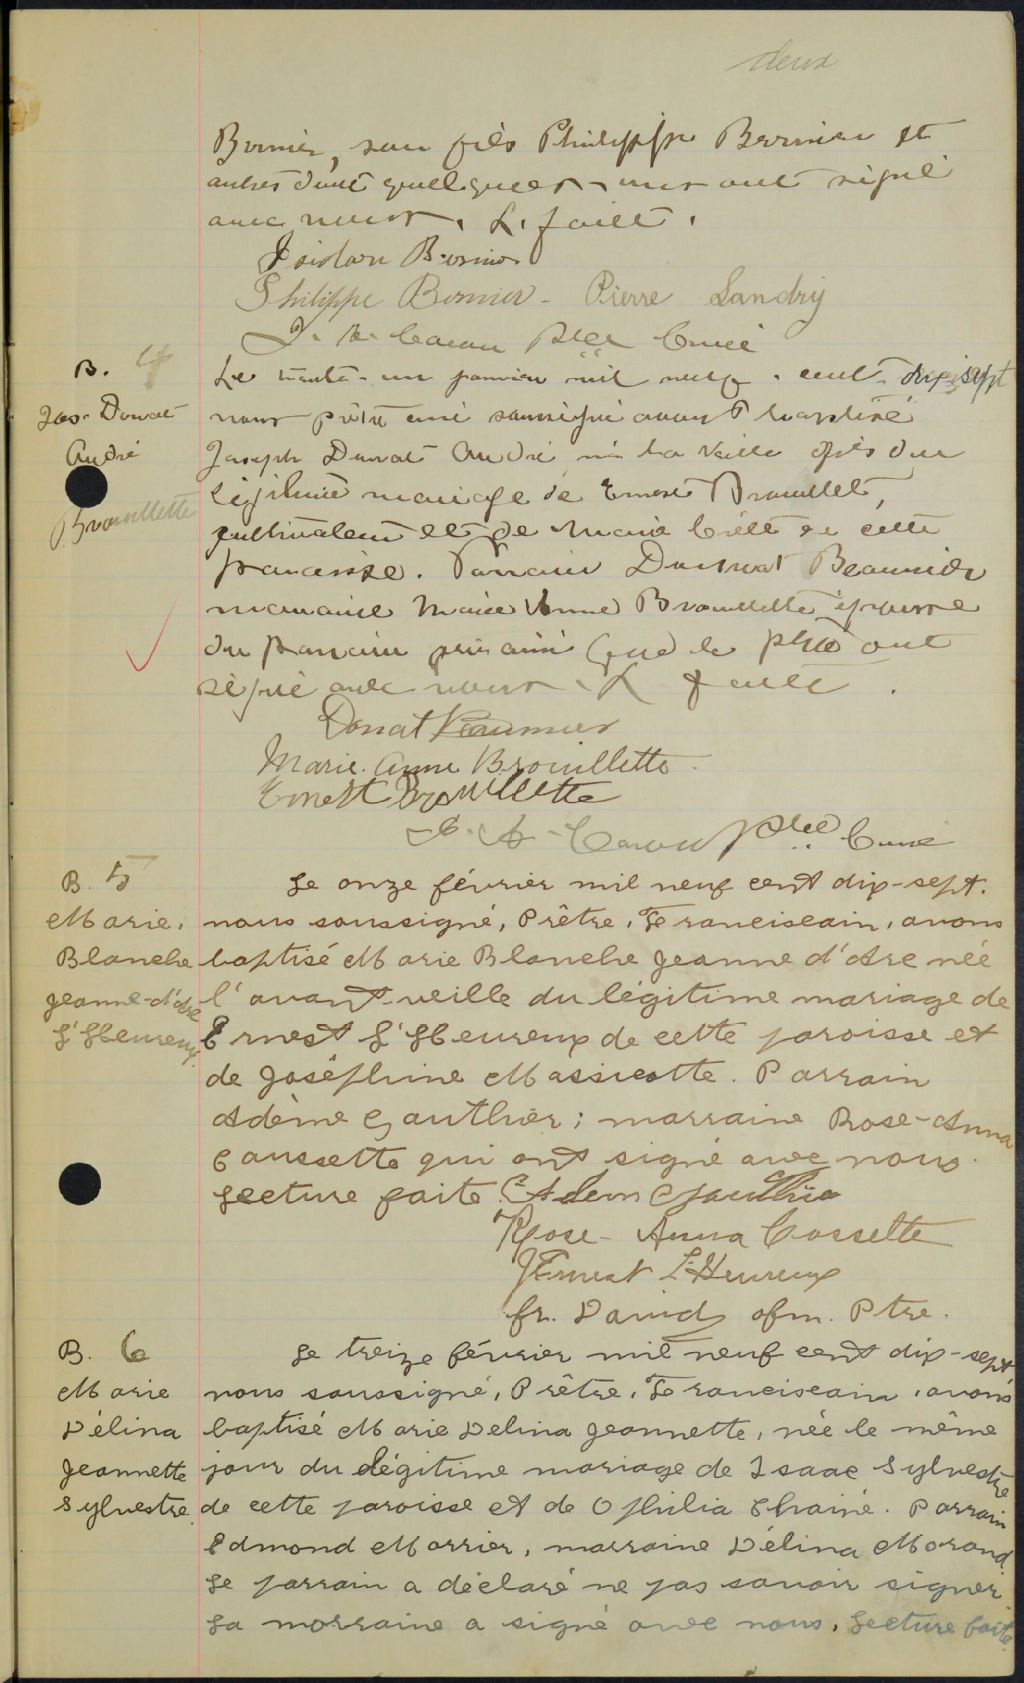 deux
Bernier, son fils Philippe Bernier et
autres dont quelques-uns ont signé
avec nous. L. faite.
Isidore Bernier
Philippe Bernier - Pierre Landry
Ptre Curé
B. 4
Jos. Donat
André
Brouillette
Le trente-un janvier mil neuf-cent-dix-sept
nous prêtre curé soussigné avons baptisé
Joseph Donat André né la veille fils du
légitime mariage de Ernest Brouillette,
cultivateur et de Maria de cette
paroisse. Parrain Donat Beaumier
marraine Marie Anne Brouillette épouse
du parrain qui ainsi que le père ont
signé avec nous. L faite.
Donat Beaumier
Marie. Anne Brouillette.
Ernest Brouillette
Ptre Curé
B. 5
Marie.
Blanche
Jeanne-d'Arc
L'Heureux.
Le onze février mil neuf cent dix-sept.
nous soussigné, Prêtre, Franciscain, avons
baptisé Marie Blanche Jeanne d'Arc née
l'avant veille du légitime mariage de
Ernest L'Heureux de cette paroisse et
de Joséphine Massicotte. Parrain
Adème Gauthier; marraine Rose-Anna
Caussette qui ont signé avec nous.
Lecture faite. Adem Gauthier
Rose-Anna Cossette
JErnest L'Heureux
fr. David ofm. Ptre.
B. 6
Marie
Délina
Jeannette
Sylvestre.
Le treize février mil neuf cent dix-sept
nous soussigné, Prêtre, Franciscain, avons
baptisé Marie Delina Jeannette, née le même
jour du légitime mariage de Isaac Sylvestre
de cette paroisse et de Ophilia Chainé. Parrain
Edmond Marrier, marraine Délina Morand.
Le parrain a déclaré ne pas savoir signer.
La marraine a signé avec nous. Lecture faite.